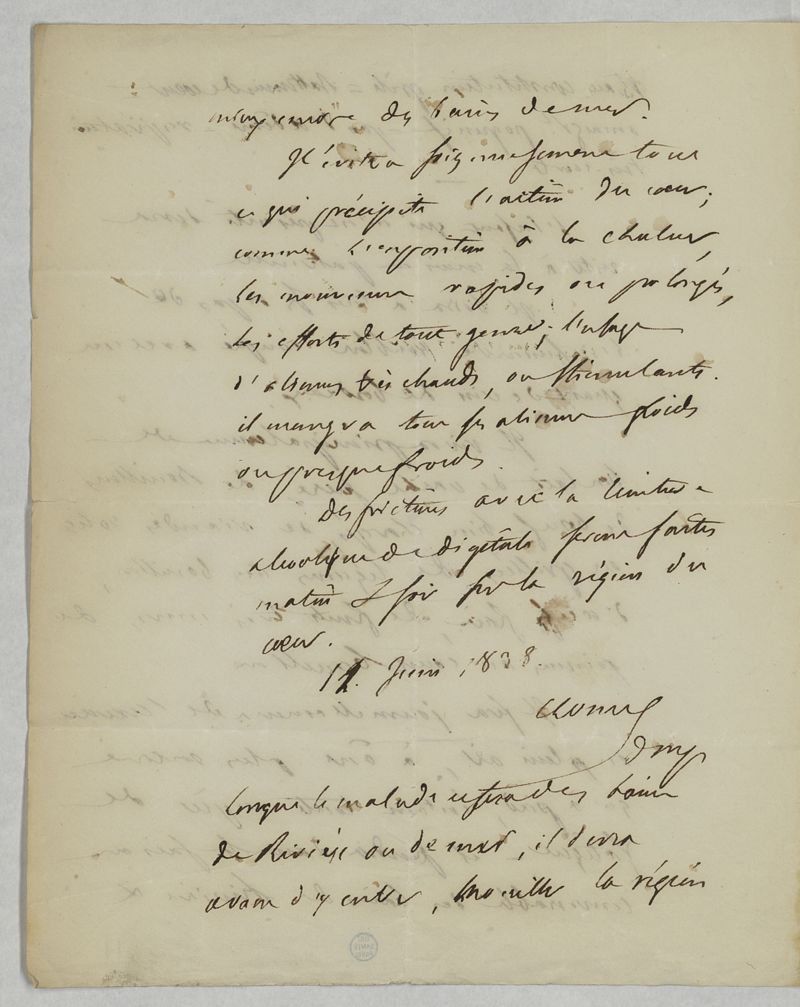 mieux encore des bains de mer.
Il évitera soigneusement tout
ce qui précipite l'action du cœur;
comme l'exposition à la chaleur,
les mouvemens rapides ou prolongés,
les efforts de tout genre; l'usage
d'alimens très chauds, ou stimulants.
il mangera tous ses alimens froids
ou presque froids.
Des frictions avec la teinture
alcoolique de digitale seront faites
matin & soir sur la région du
cœur.
Juin 1838.
Chomel
dmp
lorsque le malade usera des bains
de Rivière ou de mer, il devra
avant d'y entrer, mouiller la région